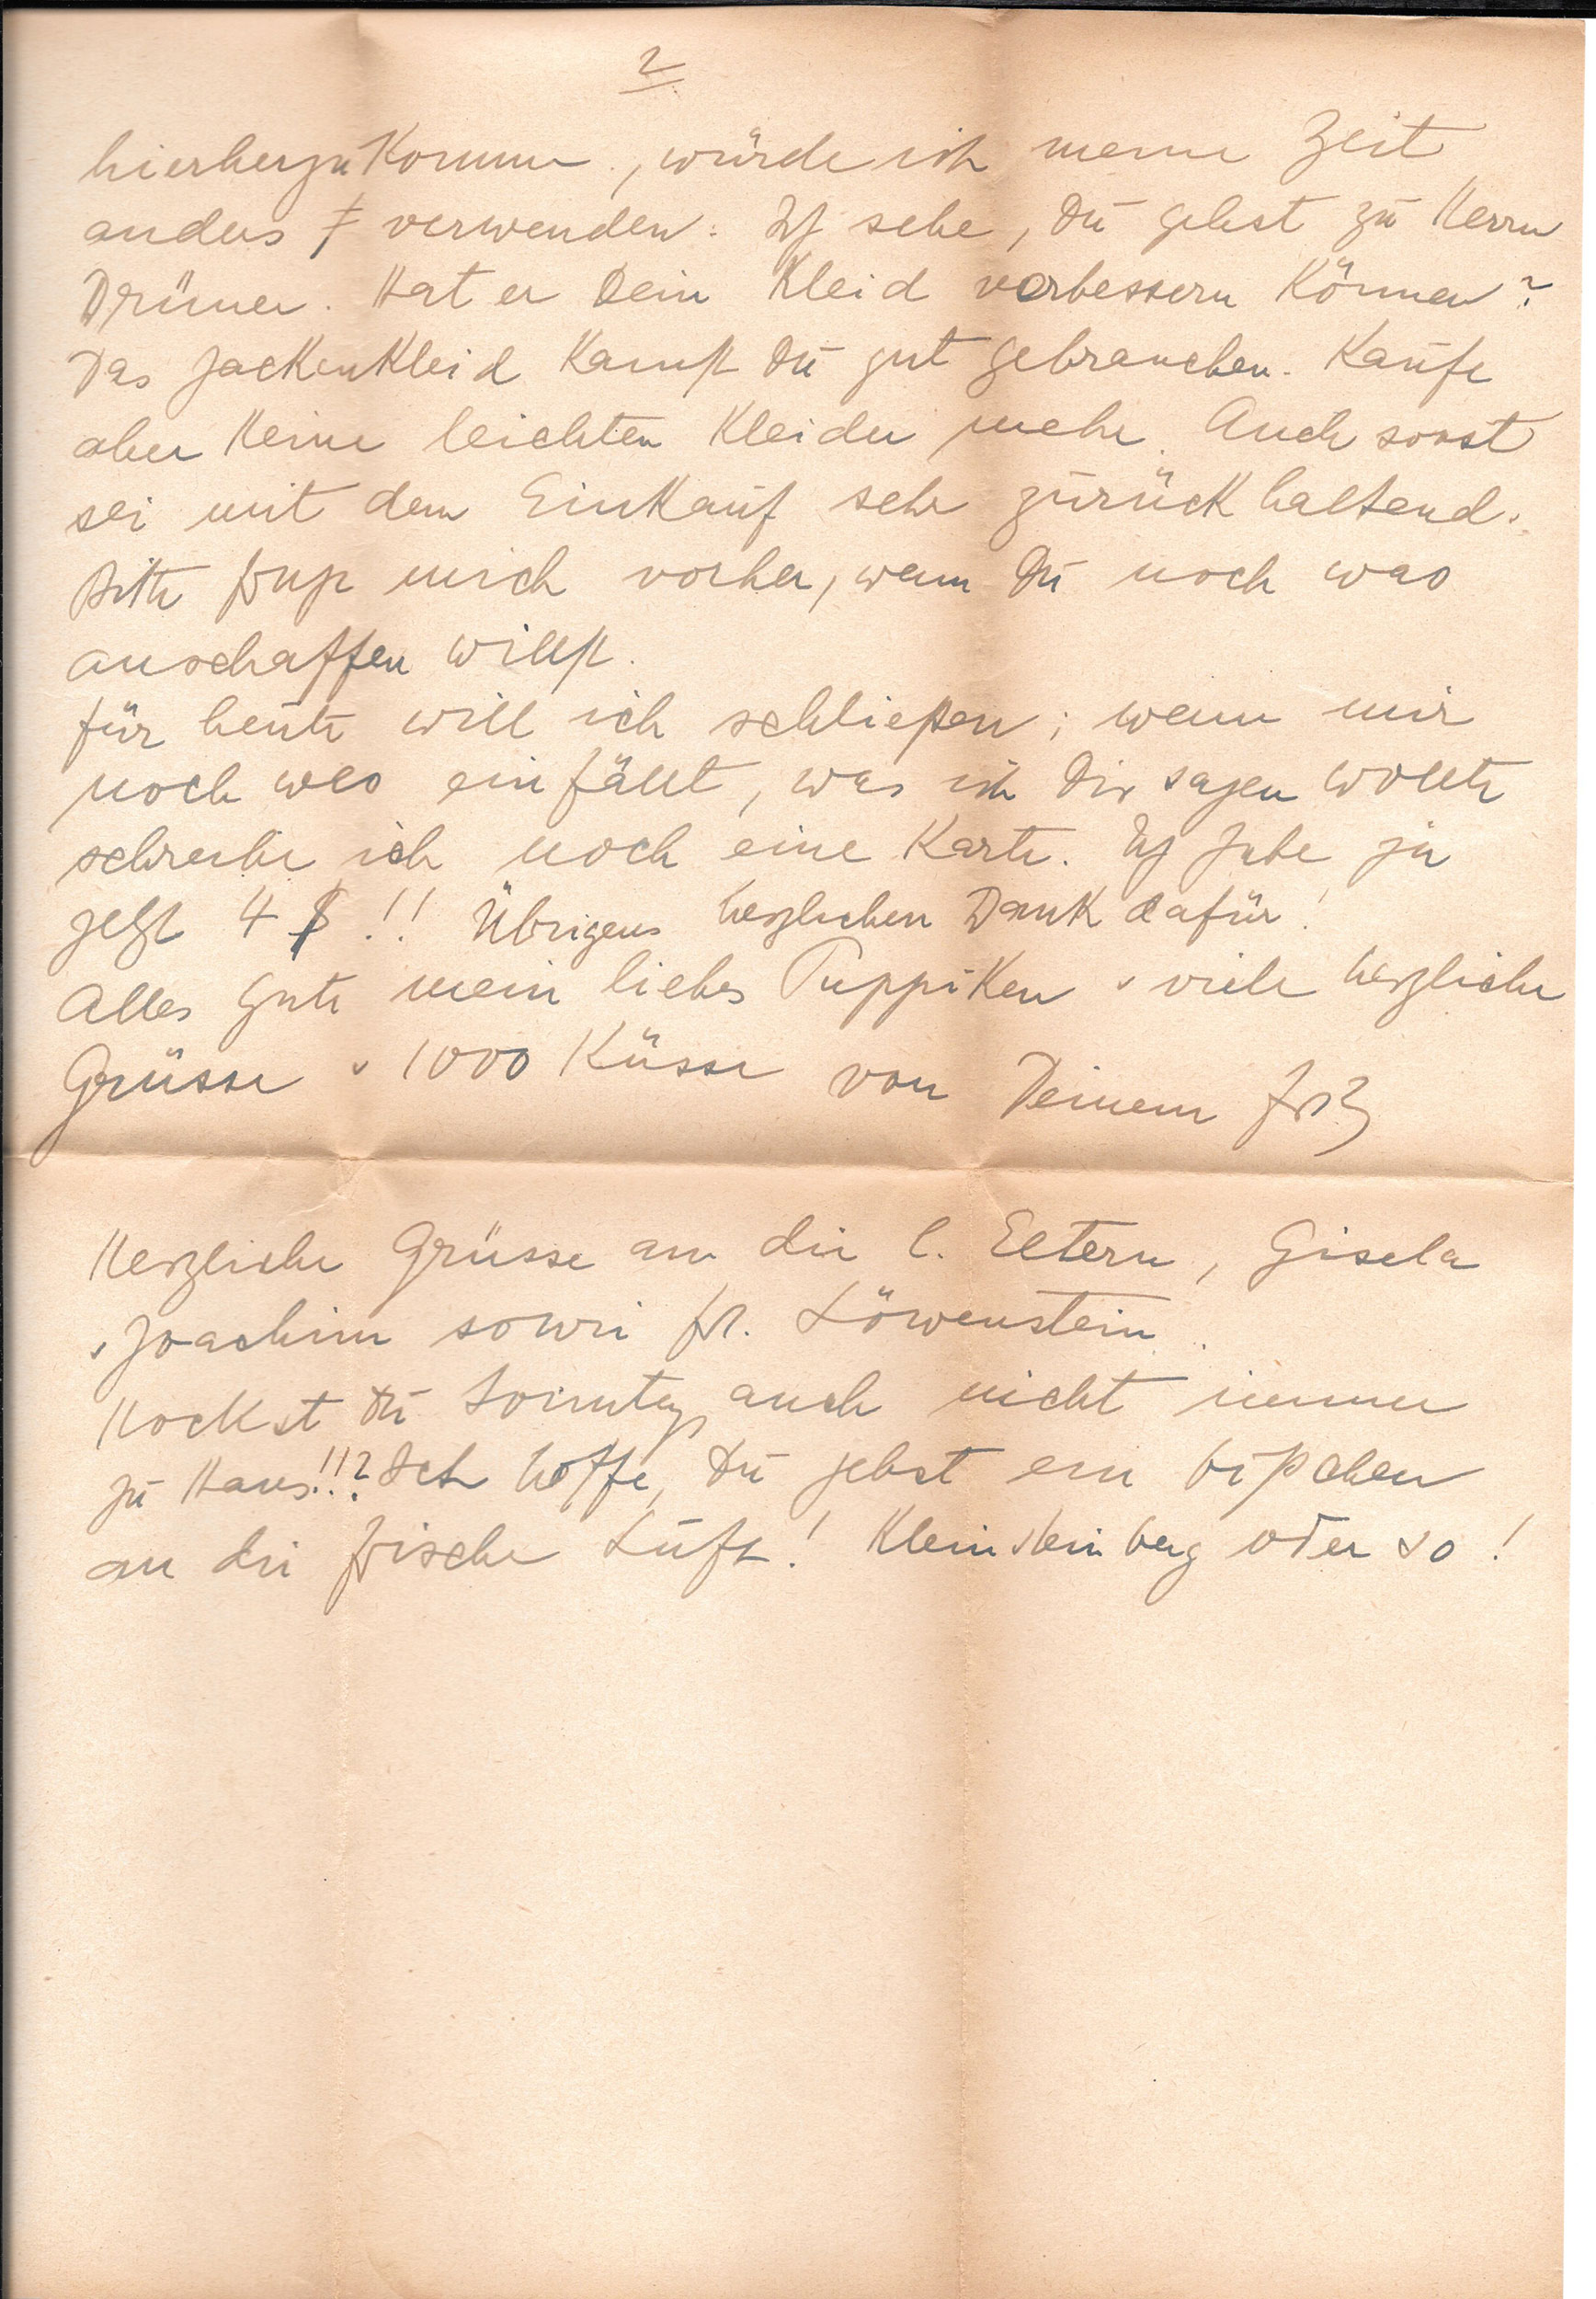 2
hierherzukommen, würde ich meine Zeit
anders verwenden. Ich sehe, Du gehst zu Herrn
Drüner. Hat er Dein Kleid verbessern können?
Das Jackenkleid kannst Du gut gebrauchen. Kaufe
aber keine leichten Kleider mehr. Auch sonst
sei mit dem Einkauf sehr zurückhaltend.
Bitte frage mich vorher, wenn Du noch was
anschaffen willst.
für heute will ich schließen; wenn mir
noch was einfällt, was ich Dir sagen wollte
schreibe ich noch eine Karte. Ich habe ja
jetzt 4 $!! Übrigens herzlichen Dank dafür!
Alles Gute mein liebes Puppiken u viele herzliche
Grüsse u 1000 Küsse von Deinem
Herzliche Grüsse an die l. Eltern, Gisela
u Joachim sowie Fr. Löwenstein.
Hockst Du Sonntag auch nicht immer
zu Haus!!? Ich hoffe, Du gehst ein bißchen
an die frische Luft! Kleinsteinberg oder so!